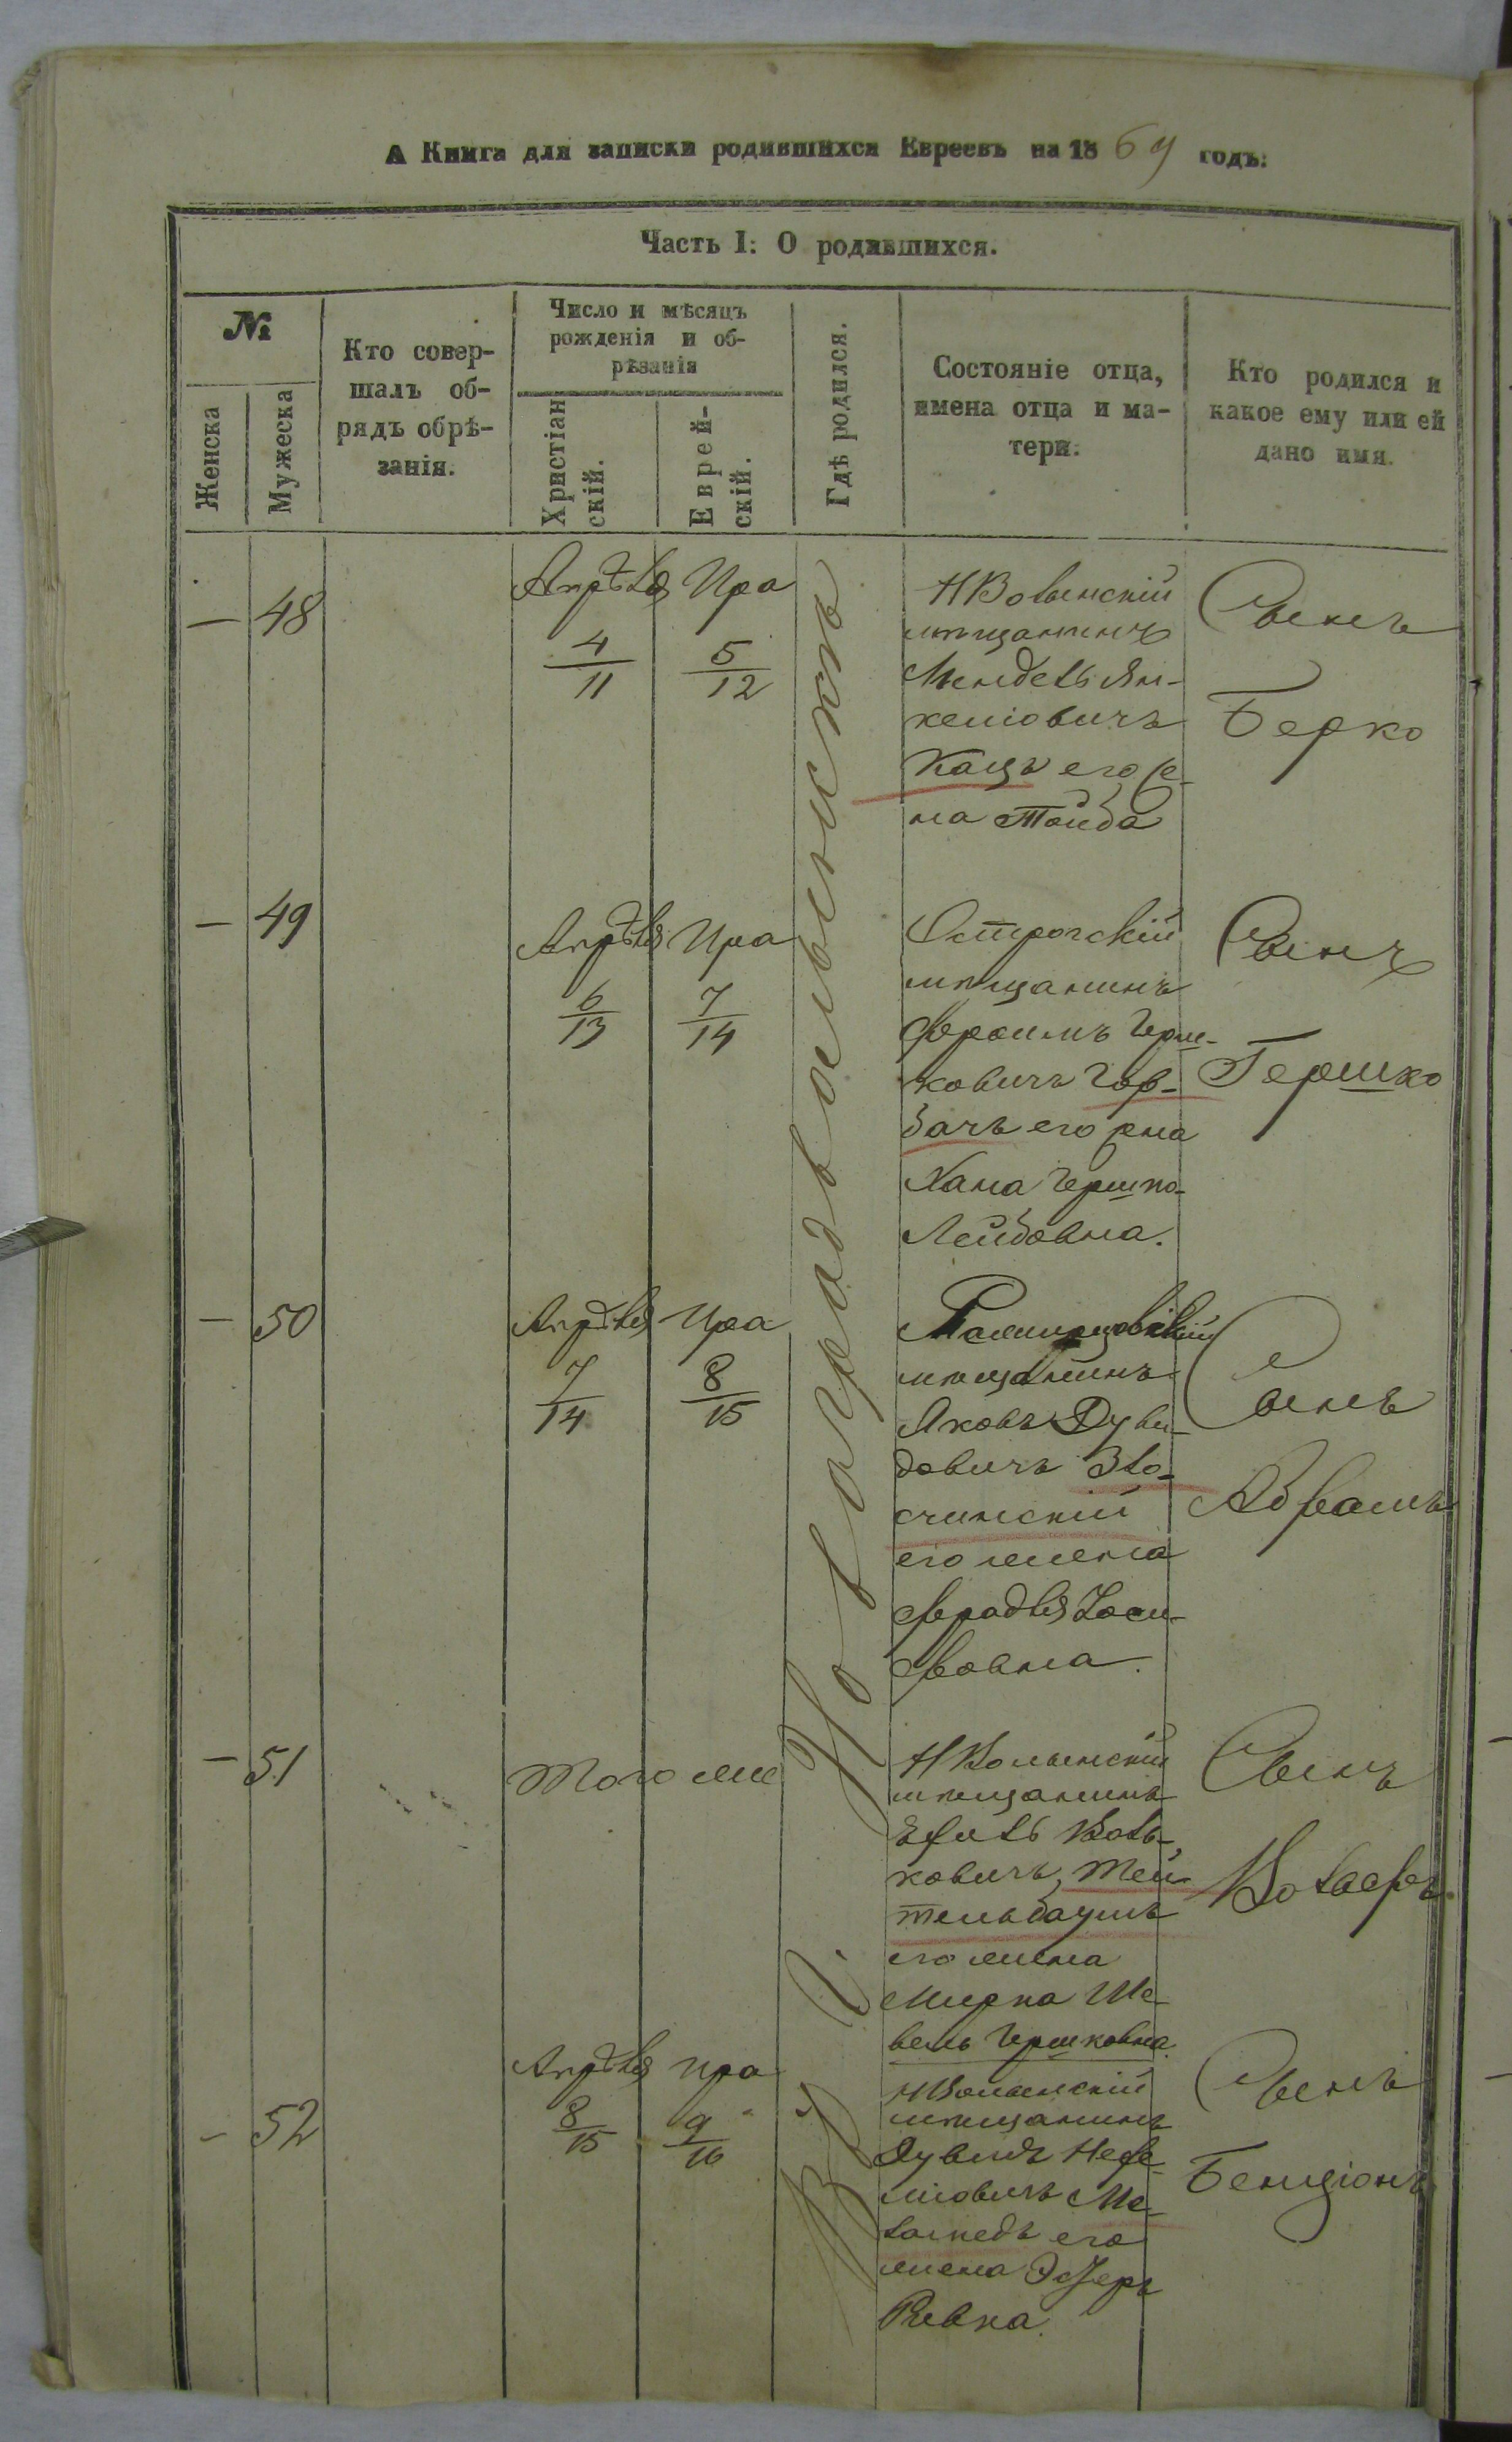 А Книга для записки родившихся Евреевъ на 1869 годъ:
Часть I: О родившихся.
№
Женска
Мужеска
Кто совер-
шалъ об-
рядъ обрѣ-
занія.
Число и мѣсяцъ
рожденія и об-
рѣзанія
Христіан
скій.
Еврей-
скій.
Гдѣ родился.
Состояніе отца,
имена отца и ма-
тери.
Кто родился и
какое ему или ей
дано имя.
Въ г. Новоградволынскѣ
— 48
Апрѣля Ира
4/11 5/12
НВолынскій
мѣщанинъ
Мендель Ян-
келіовичъ
Кацъ его же-
на Тойба
Сынъ
Берко
— 49
Апрѣля Ира
6/13 7/14
Острогскій
мѣщанинъ
Фроимъ Герш-
ковичъ Гор-
бачъ его жна
Хана Гершко-
Лейбовна.
Сынъ
Гершко
— 50
Апрѣля Ира
7/14 8/15
мѣщанинъ
Яковъ Дуви-
довичъ Зло-
счинскій
его жена
Фрадля Іоси-
фовна.
Сынъ
Абрамъ
— 51
Того же
НВолынскій
мѣщанинъ
Вольковичъ, Тей-
тельбаумъ
его жена
Мирка Ше-
вель Гершковна.
Сынъ
Вольфъ
- 52
Апрѣля Ира
8/15 9/16
НВолынскій
мѣщанинъ
Дувидъ Нефе-
ліовичъ Ме-
ламедъ его
жена Эстеръ
Ривка.
Сынъ
Бенціонъ